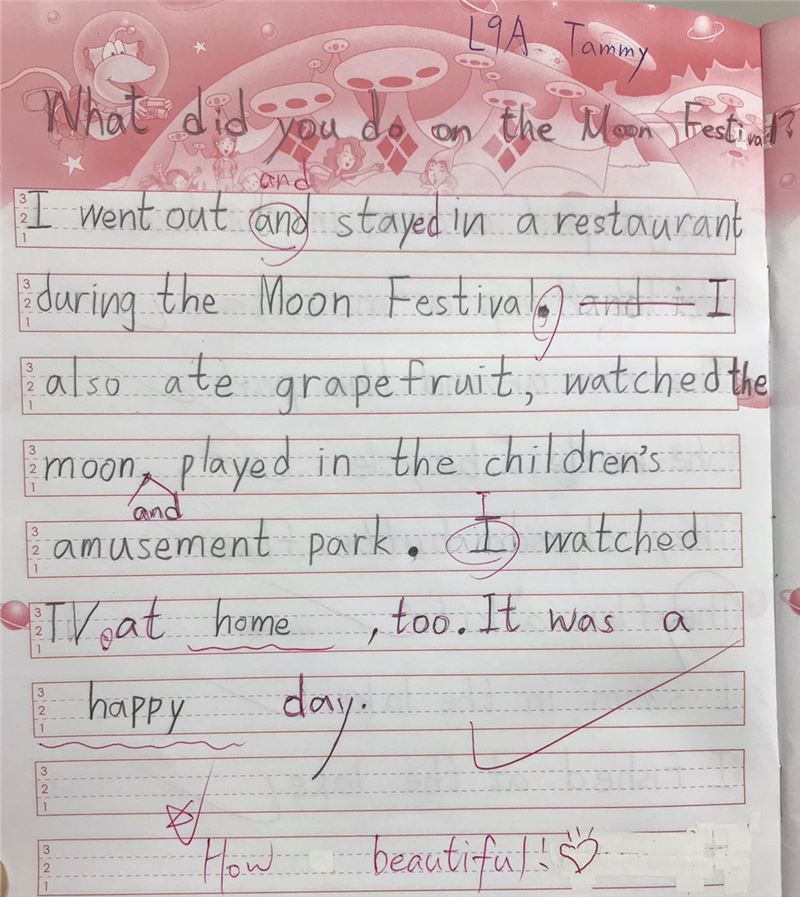 L9A Tammy
What did you do on the Moon Festival?
and
I went out and stayed in a restaurant
during the Moon Festival. and i I
also ate grapefruit, watched the
moon, played in the children's
and
I
amusement park. I watched
TV at home , too. It was a
happy day.
How beautiful!